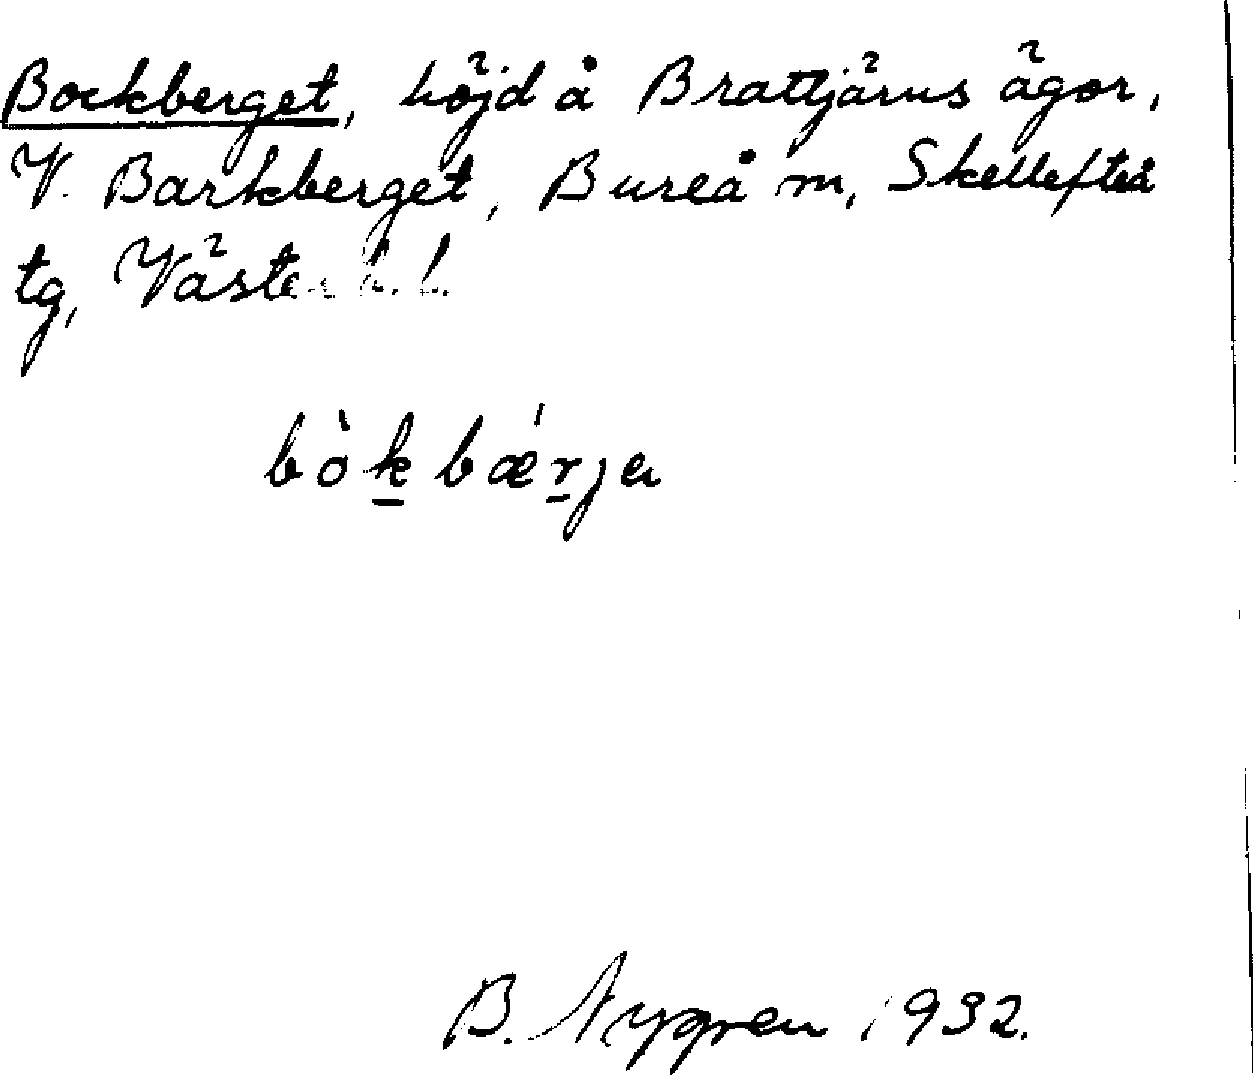 Bockberget, höjd å Brattjärns ägor,
V. Barkberget, Bureå m, Skellefteå
tg, Västerb. l.
bòkbǽrja
B. Nygren 1932.